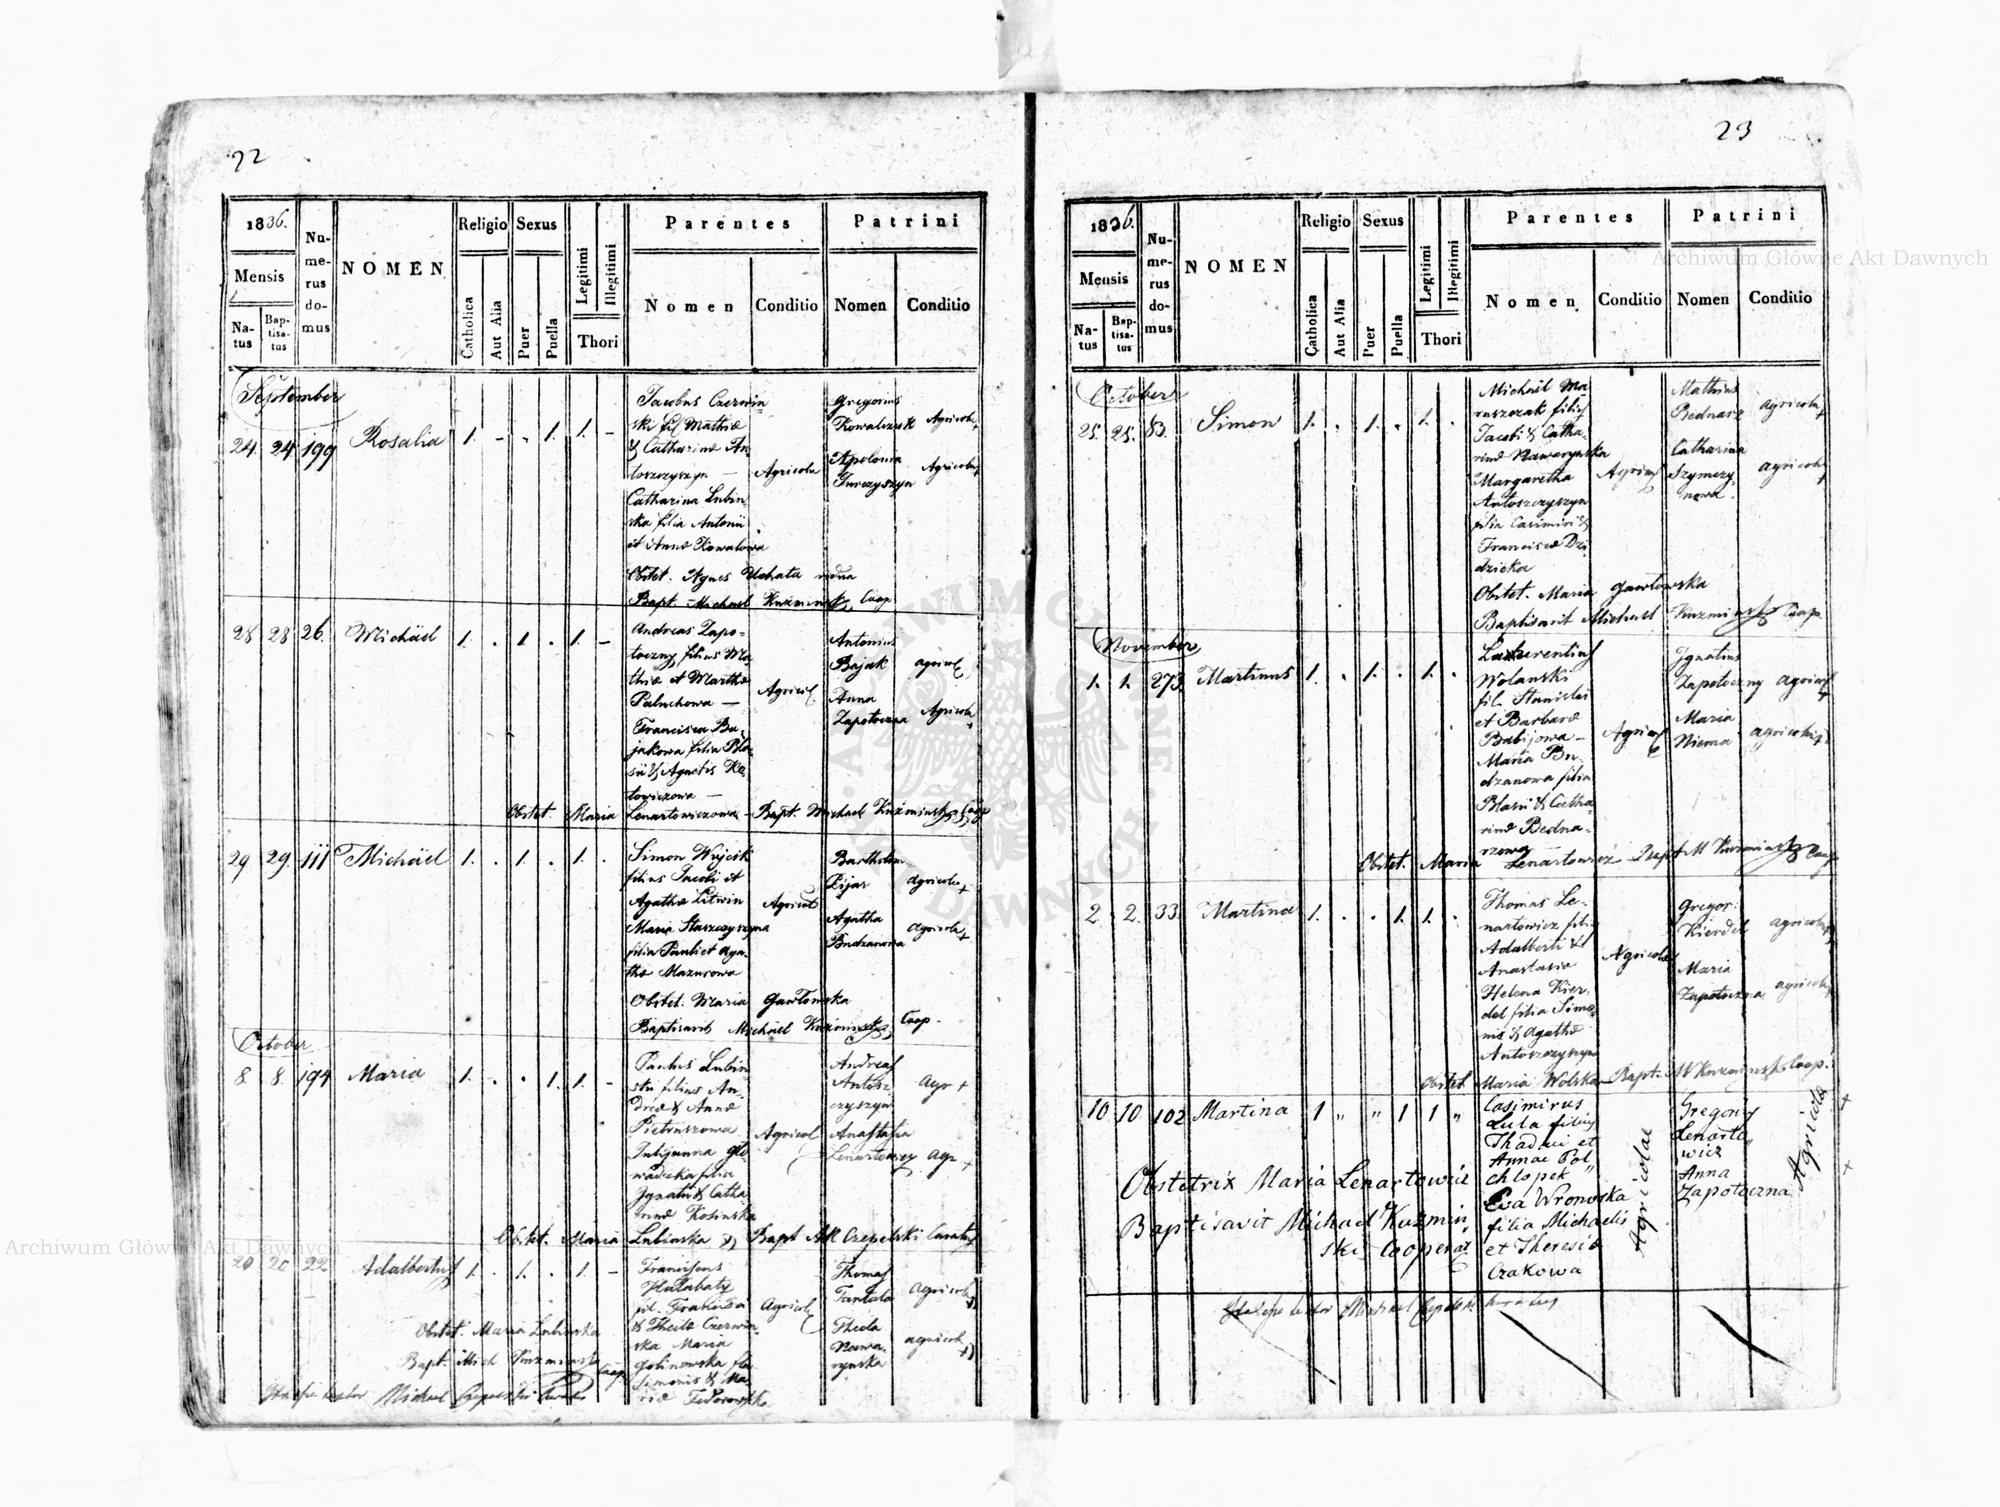 22
1836.
Mensis
Na-
tus
Bap-
tisa-
tus
Nu-
me-
rus
do-
mus
NOMEN
Religio
Catholica
Aut Alia
Sexus
Puer
Puella
Legitimi
Illegitimi
Thori
Parentes
Nomen
Conditio
Patrini
Nomen
Conditio
September
24 24 199 Rosalia 1. - . 1. 1. -
Jacobus Czerwin
ski fil Mathiæ
& Catharinæ An
toszczyszyn — Agricola
Catharina Lubin
ska filia Antonii
et Annæ Kowalowa
Gregorius
Kowalczuk Agricola +
Apolonia
Jurczyszyn Agricola +
Obstet. Agnes Uchata
Bapt. Michael Kuźminski, Coop.
28 28 26. Michäel 1. . 1. . 1. -
Andreas Zapo-
toczny filius Ma
thiæ et Marthæ
Paluchowa — Agricol
Francisca Ba-
jakowa filia Bla-
sii & Agnetis Ko
towiczowa —
Antonius
Bajak agricol
Anna
Zapotoczna Agricola +
Obstet. Maria Lenartowiczowa - Bapt. Michael Kuźminski Coop
29 29. 111 Michäel 1. . 1. . 1. .
Simon Wujcik
filius Jacobi et
Agathæ Litwin Agricol
Maria Staszczyszyna
filia Pauli et Aga-
thæ Mazurowa
Bartholom
Pijar agricola +
Agatha
Budzanowa agricola +
Obstet. Maria Gawłowska
Baptisavit Michäel Kuźminski, Coop.
October
8. 8. 194 Maria 1. . . 1. 1. -
Paulus Lubin
ski filius An-
dreæ & Annæ
Pietruszowa Agricol
Julijanna Gło-
wadzka filia
Ignatii & Catha-
rinæ Kosinska
Andreas
Antosz
czyszyn Agr +
Anastasia
Lenartowicz agr +
Obstet. Maria Lubinska Bapt Czepelski Curatus
20 20 22 Adalbertus 1. . 1. . 1. -
Franciscus
Hałabaty
fil. Francisci Agricol
& Theclæ Czerwin
ska Maria
Golinowska filia
Simonis & Ma-
riæ Fedorowska
Thomas
Tantala agricola +
Thecla
Nawa-
rynska agricola +
Obstet. Maria Lubinska
Bapt. Mich Kuźminski
Coop
Michael Czepelski Curatus
23
1836.
Mensis
Na-
tus
Bap-
tisa-
tus
Nu-
me-
rus
do-
mus
NOMEN
Religio
Catholica
Aut Alia
Sexus
Puer
Puella
Legitimi
Illegitimi
Thori
Parentes
Nomen
Conditio
Patrini
Nomen
Conditio
October
25. 25. 83. Simon 1. . 1. . 1. .
Michäel Ma-
ruszczak filius
Jacobi & Catha-
rinæ Nawarynska
Margaretha Agricol
Antoszczyszyn
filia Casimiri &
Franciscæ Dzi
dzicka
Mathias
Bednarz agricola +
Catharina
Szymczy-
nowa agricola +
Obstet. Maria Gawłowska
Baptisavit Michael Kuzminski Coop
November
1. 1. 273. Martinus 1. . 1. . 1. .
Laurentius
Wolanski
fil. Stanislai
et Barbaræ
Babijowa — Agricol
Maria Bu-
dzanowa filia
Blasii & Catha
rinæ Bedna-
rzowa —
Ignatius
Zapotoczny agricol +
Maria
Niema agricola +
Obstet. Maria Lenartowicz Bapt M Kuzminski Coop
2. 2. 33. Martina 1. . . 1. 1. .
Thomas Le-
nartowicz filius
Adalberti &
Anastasia Agricola
Helena Kier-
del filia Simo-
nis & Agathæ
Antoszczyszyn
Gregor.
Kierdel agricola +
Maria
Zapotoczna agricola +
Obstet Maria Wolska Bapt. M Kuzminski Coop.
10 10 102 Martina 1 " " 1 1 "
Casimirus
Lula filius
Thadæi et
Annae Pol"
chłopek
Eva Wronoska
filia Michaelis
et Theresiæ
Czakowa
Agricolae
Gregory
Lenarto"
wicz
Anna
Zapotoczna
Agricolæ
+
+
Obstetrix Maria Lenartowicz
Baptisavit Michael Kuźmin"
ski Cooperat
Michael Czepelski Curatus
Archiwum Główne Akt Dawnych
Archiwum Główne Akt Dawnych
ARCHIWUM GŁÓWNE AKT DAWNYCH